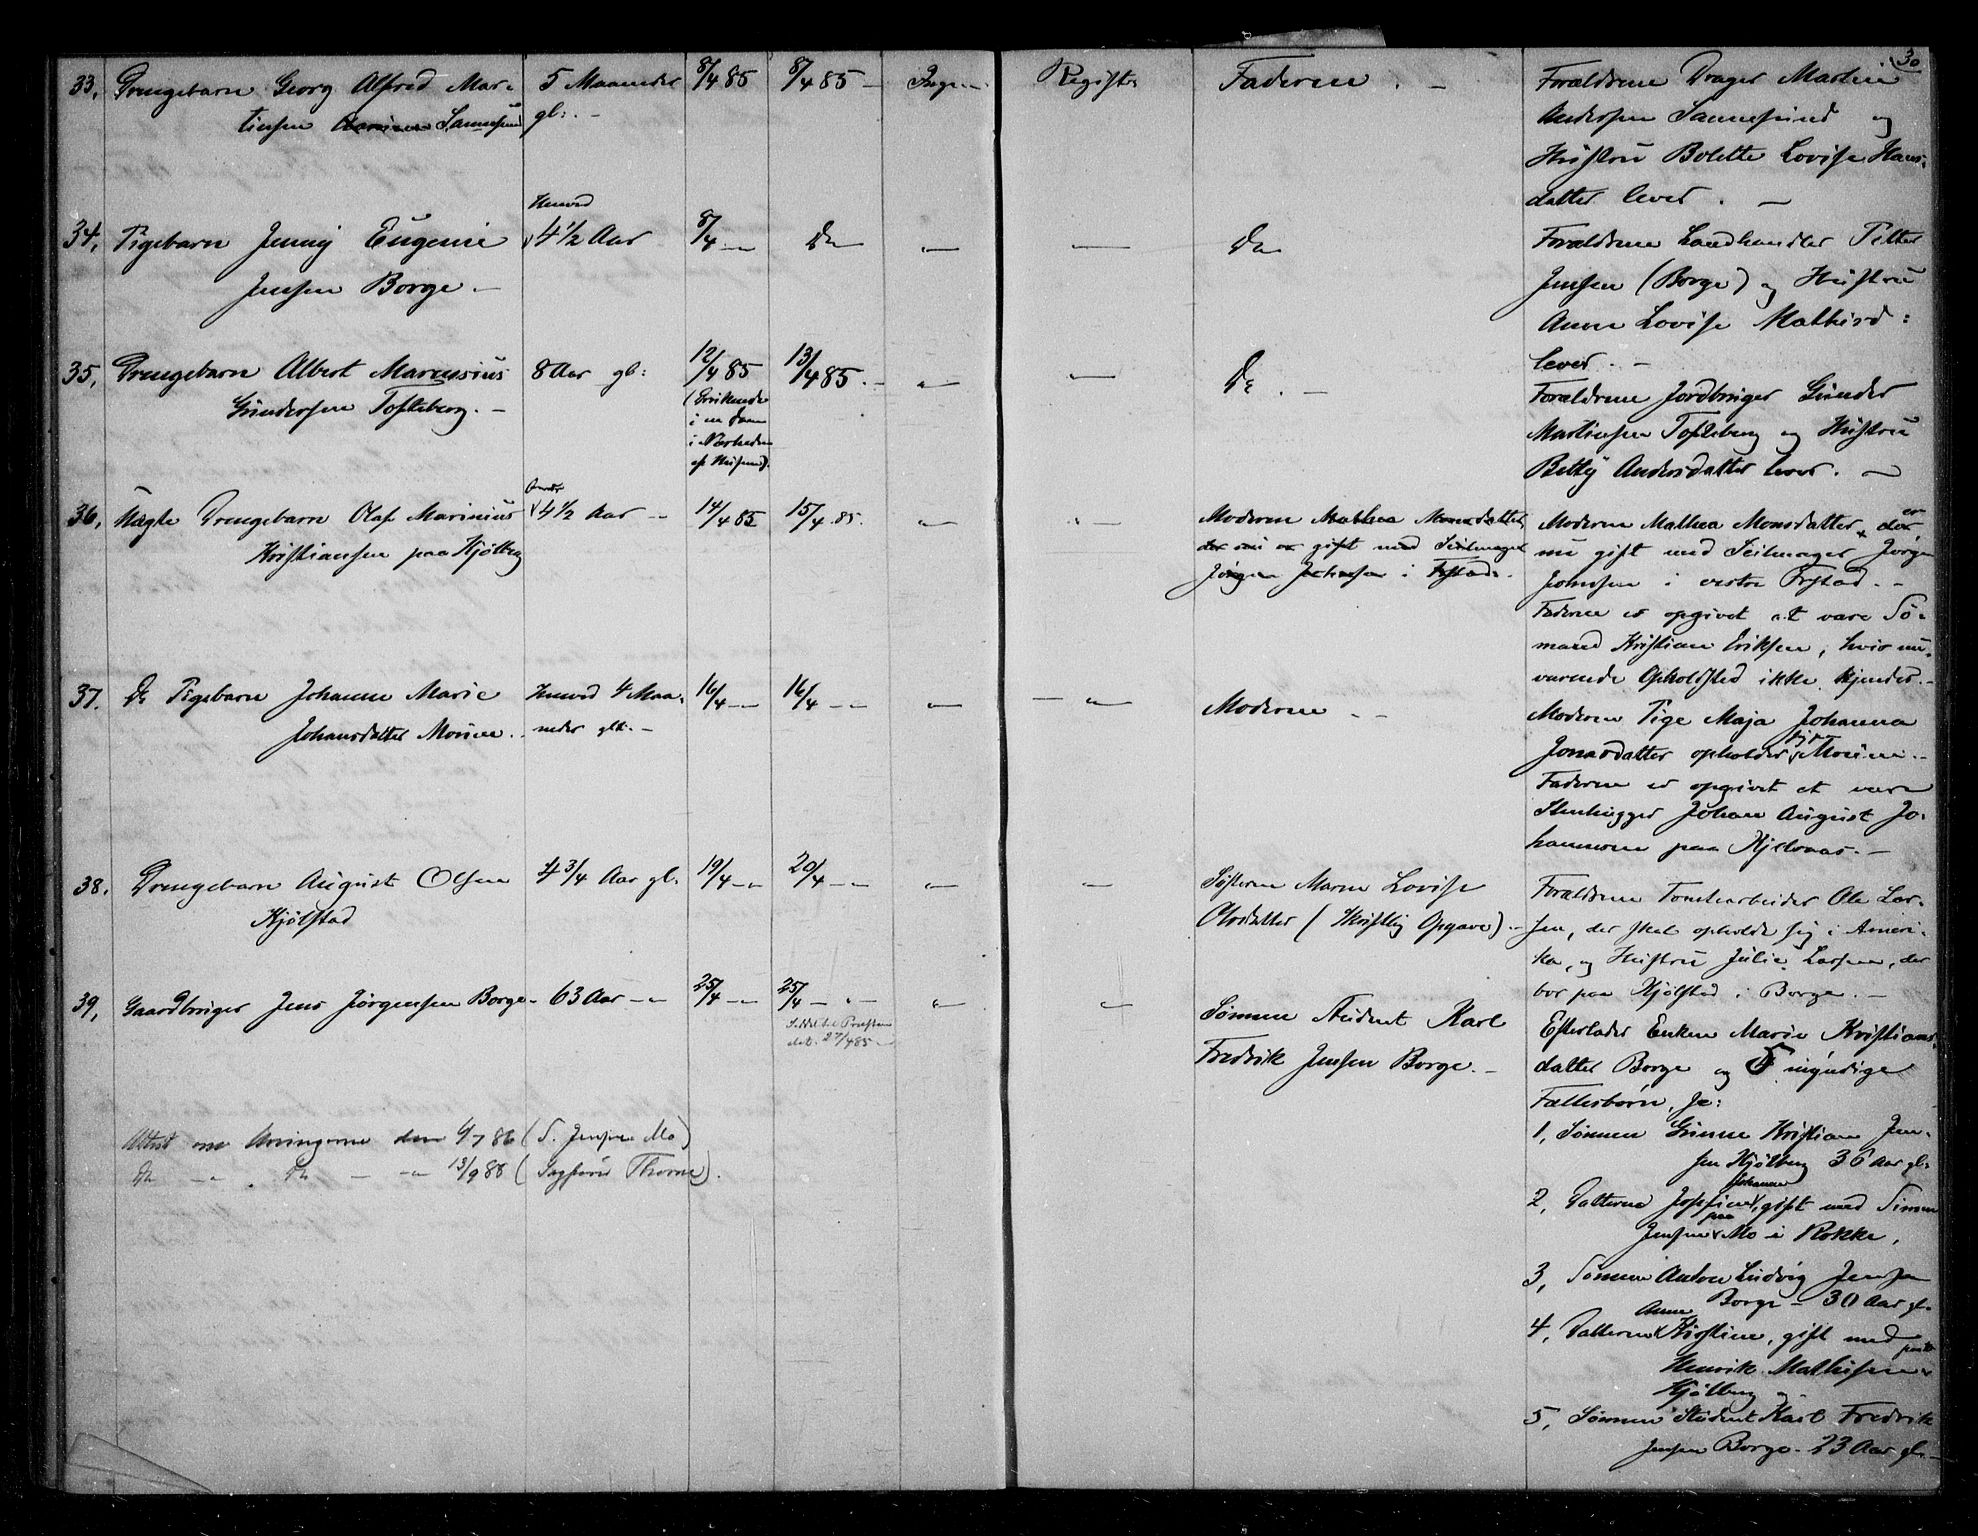 30
33, Drengebarn Georg Alfred Mar-
tinsen Sannesund
5 Maaneder
gl: -
8/4 85
8/4 85 -
Ingen
Registr
Faderen . -
Forældrene Drager Martin
Andersen Sannesund og
Hustru Bolette Lovise Hans-
datter lever . -
34, Pigebarn Jenny Eugenie
Jensen Borge -
Henved
4 1/2 Aar
8/4 - "
Do
"
"
Do
Forældrene Landhandler Petter
Jensen (Borge) og Hustru
Anne Lovise Mathisd:
lever . -
35, Drengebarn Albert Marensius
Gundersen Tofteberg. -
8 Aar gl:
12/4 85
(Druknede
i en Dam
i Nærheden
af Husene).
13/4 85. -
"
"
Do . -
Forældrene Jordbruger Gunder
Martinsen Tofteberg og Hustru
Betty Andersdatter lever. -
36, Uægte Drengebarn Olaf Marinius
Kristiansen paa Kjølberg
4 1/2 Aar -
14/4 85
15/4 85.
"
"
Moderen Mathea Monsdatter,
der nu er gift med Seilmager
Jørgen Johnsen i Frstad.
Moderen Mathea Monsdatter, er
nu gift med Seilmager Jørgen
Johnsen i vestre Frstad. -
Faderen er opgivet at være Sø-
mand Kristian Eriksen, hvis nu-
værende Opholdsted ikke kjendes. -
37. Do Pigebarn Johanne Marie
Johansdatter Moum. -
Henved 4 Maa-
neder gl: -
16/4 - "
16/4 - "
"
"
Moderen . -
Moderen Pige Maja Johanna
Jonasdatter opholder sig paa Moum. -
Faderen er opgivet at være
Stenhugger Johan August Jo-
hannesen paa Kjelvaas. -
38. Drengebarn August Olsen
Kjølstad
4 3/4 Aar gl.
19/4 - "
20/4 - "
"
"
Søsteren Maren Lovise
Olsdatter (Skriftlig Opgave). -
Forældrene Tomtearbeider Ole Lar-
sen, der skal opholde sig i Ameri-
ka, og Hustru Julie Larsen, der
bor paa Kjølstad i Borge. -
39, Gaardbruger Jens Jørgensen Borge -
63 Aar - "
25/4 - "
25/4 - " -
Seddel til Præsten
dat. 27/4 85 -
"
"
Sønnen Student Karl
Fredrik Jensen Borge. -
Efterlader Enken Marie Kristians-
datter Borge og 5 myndige
Fællesbørn, :
1, Sønnen Gunne Kristian Jen-
sen Kjølberg 36 Aar gl:
2, Datteren Josefine Johanne, gift med Simen
Jensen paa Mo i Rokke,
3, Sønnen Anton Ludvig Jensen
Borge - 30 Aar gl.
4, Datteren Anne Kristine, gift med
Henrik Mathisen
Kjølberg og
5, Sønnen Student Karl Fredrik
Jensen Borge - 23 Aar gl. -
Attest om Arvingerne den 6/7 86 (S. Jensen Mo)
Do - " . Do - - " 13/9 88 (Sagfører Thorne).